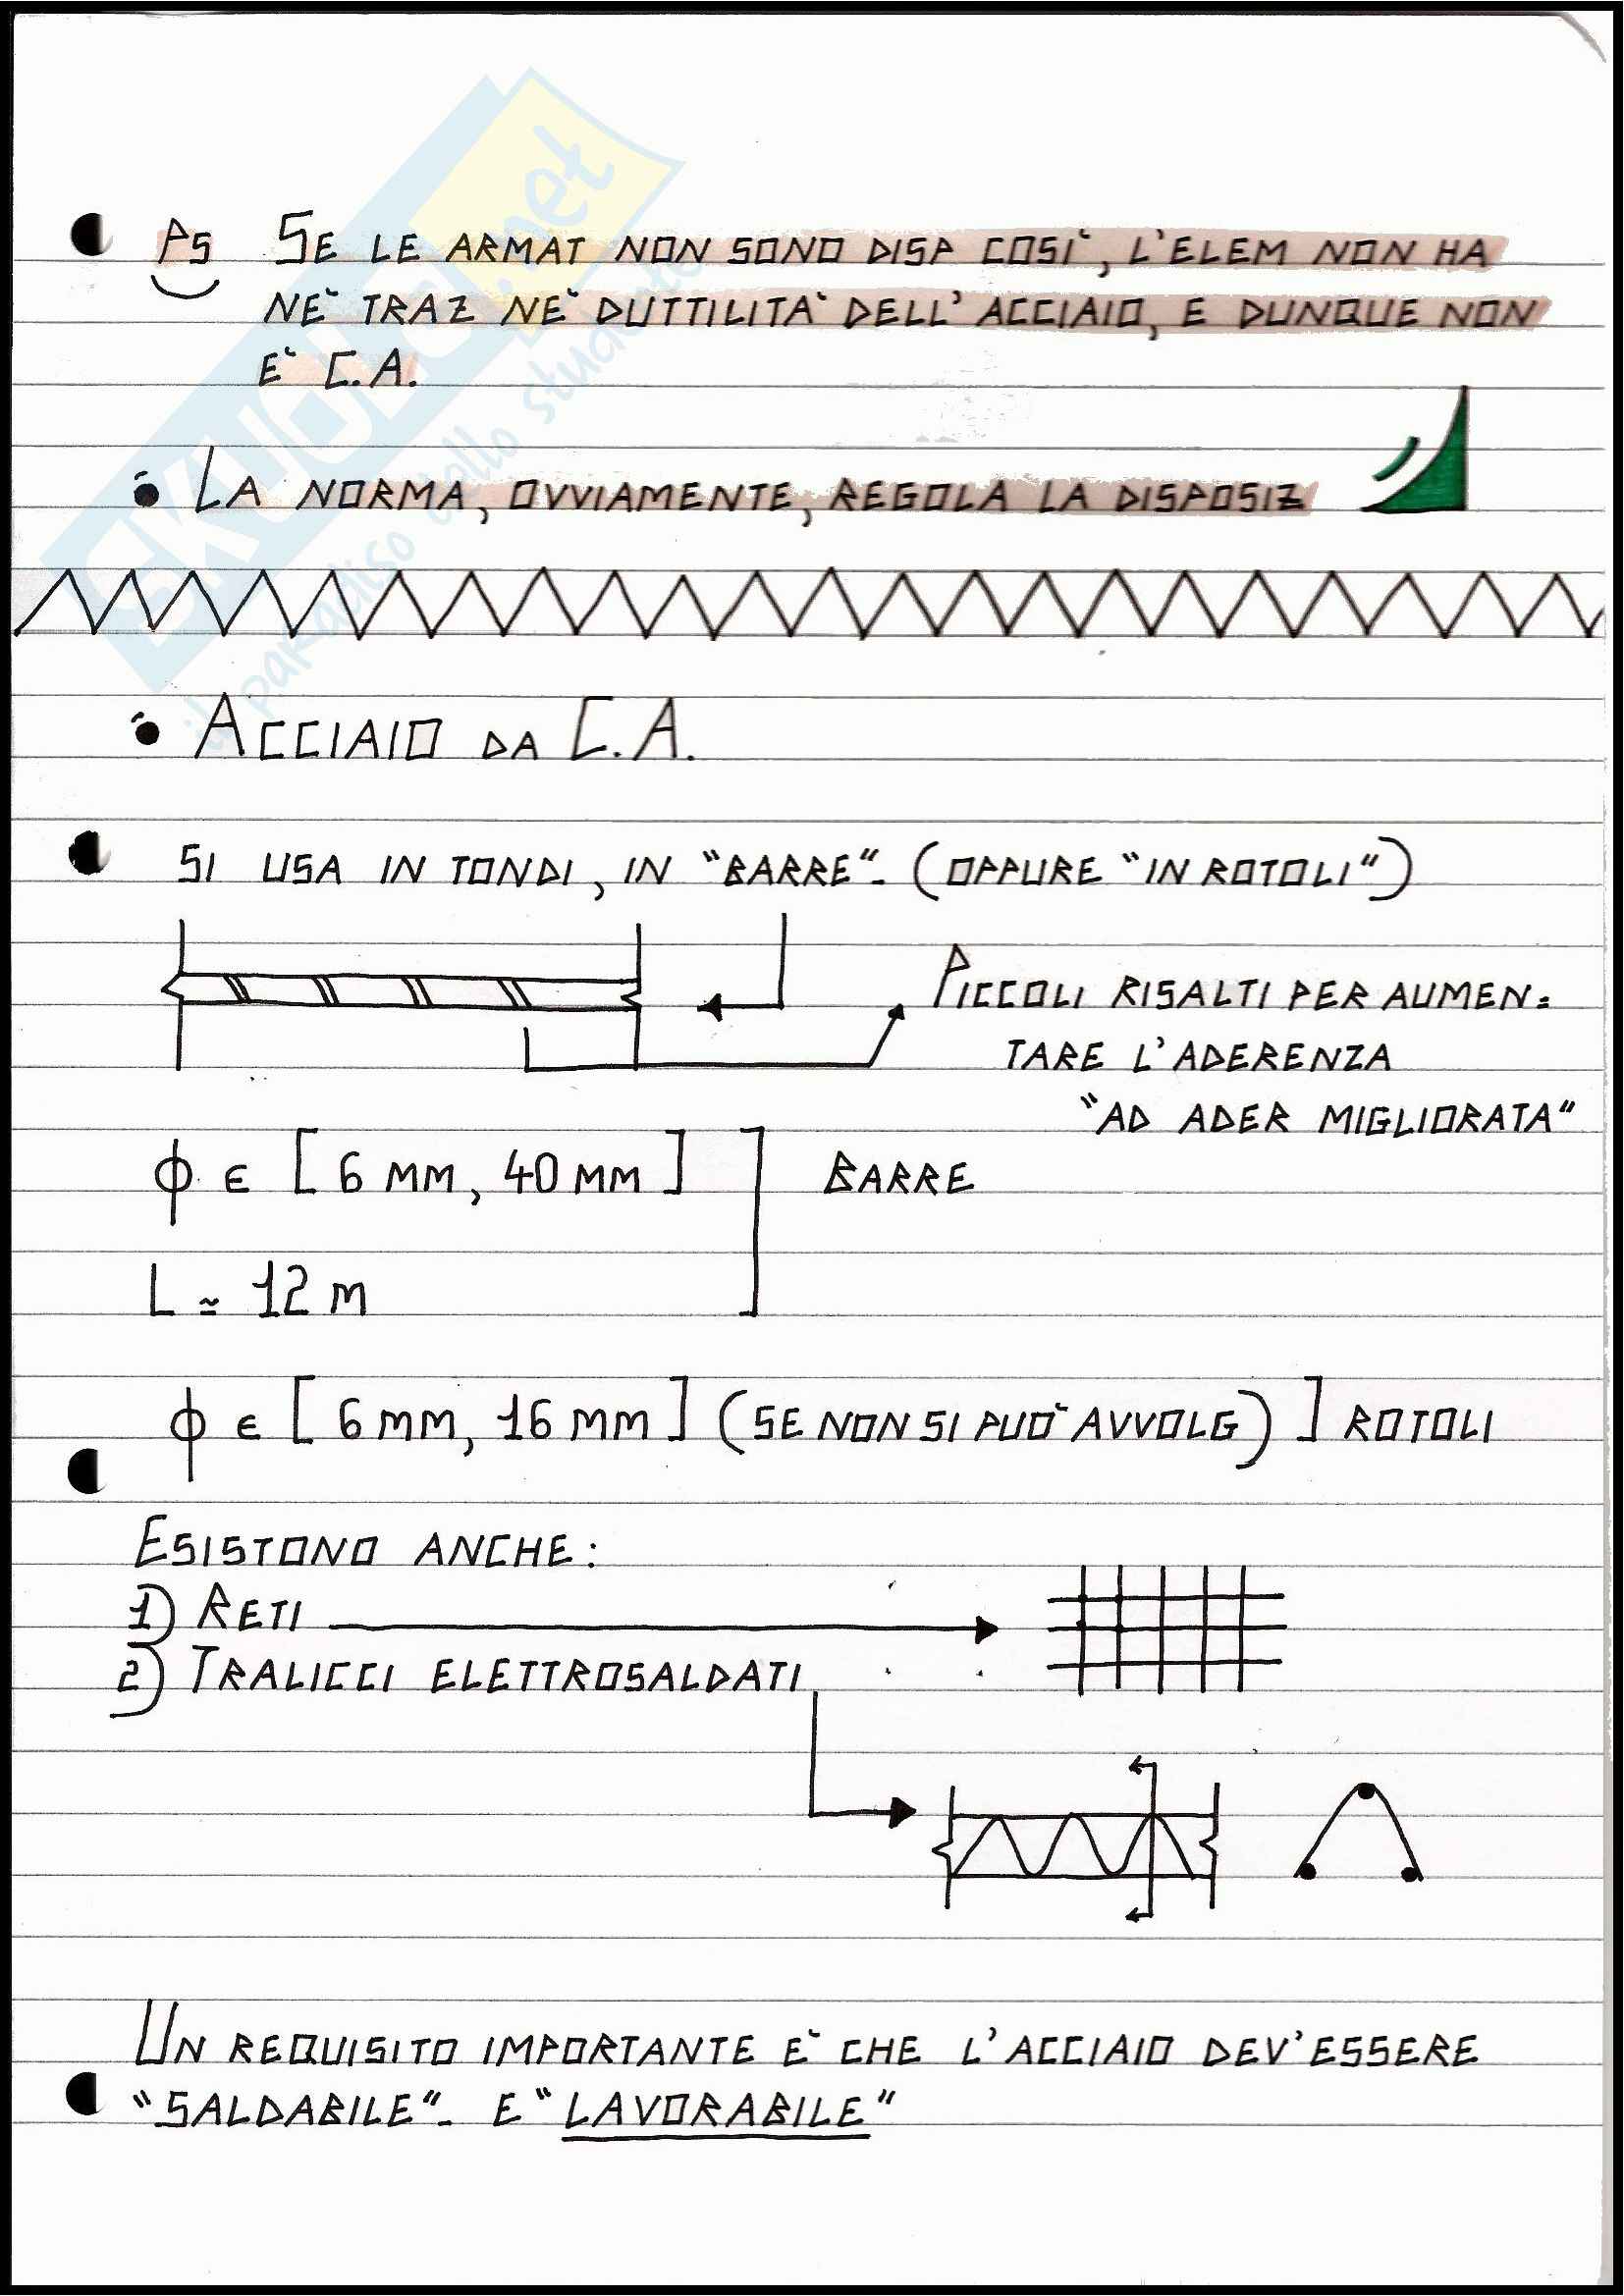 PS SE LE ARMAT NON SONO DISP COSÌ, L'ELEM NON HA
NÈ TRAZ NÈ DUTTILITÀ DELL'ACCIAIO, E DUNQUE NON
È C.A.
LA NORMA, OVVIAMENTE, REGOLA LA DISPOSIZ
ACCIAIO DA C.A.
SI USA IN TONDI, IN "BARRE". (OPPURE "IN ROTOLI")
PICCOLI RISALTI PER AUMEN=
TARE L'ADERENZA
"AD ADER MIGLIORATA"
ϕ ∈ [6 mm, 40 mm] BARRE
L ≃ 12 m
ϕ ∈ [6 mm, 16 mm] (SE NON SI PUÒ AVVOLG) ] ROTOLI
ESISTONO ANCHE:
1) RETI
2) TRALICCI ELETTROSALDATI
UN REQUISITO IMPORTANTE È CHE L'ACCIAIO DEV'ESSERE
"SALDABILE". E "LAVORABILE"
SKUOLA.net
il paradiso dello studente